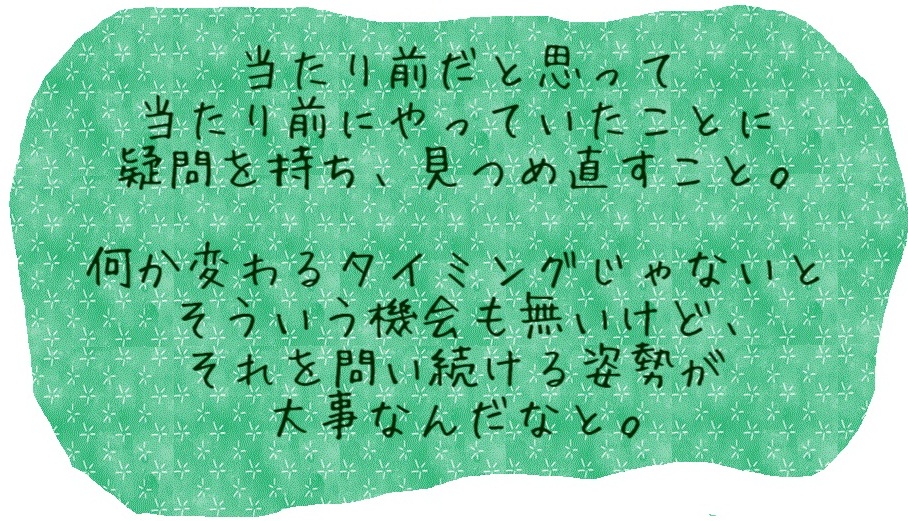 当たり前だと思って
当たり前にやっていたことに
疑問を持ち、見つめ直すこと。
何か変わるタイミングじゃないと
そういう機会も無いけど、
それを問い続ける姿勢が
大事なんだなと。